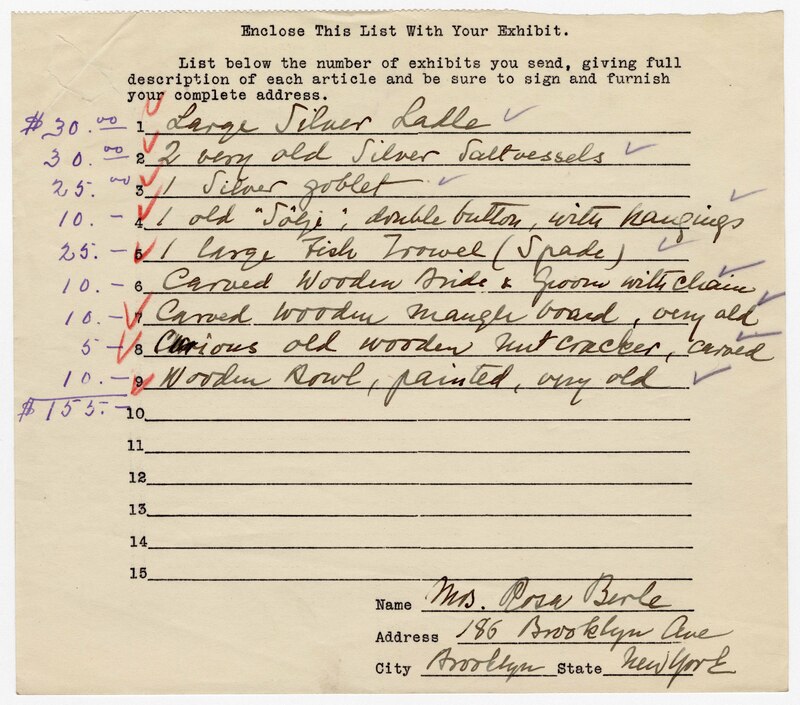 Enclose This List With Your Exhibit.
List below the number of exhibits you send, giving full
description of each article and be sure to sign and furnish
your complete address.
$30.00 1 Large Silver Ladle ✓
30.00 2 2 very old Silver Saltvessels ✓
25.00 3 1 Silver goblet ✓
10.– 4 1 old "Sölje", double button, with hangings ✓
25.– 5 1 large Fish Trowel (Spade) ✓
10.– 6 Carved Wooden Bride & Groom with chain ✓
10.– 7 Carved wooden mangle board, very old ✓
5– 8 Curious old wooden Nutcracker, carved ✓
10.– 9 Wooden Bowl, painted, very old ✓
$155.– 10
11
12
13
14
15
Name Mrs. Rosa Berle
Address 186 Brooklyn Ave
City Brooklyn State New York